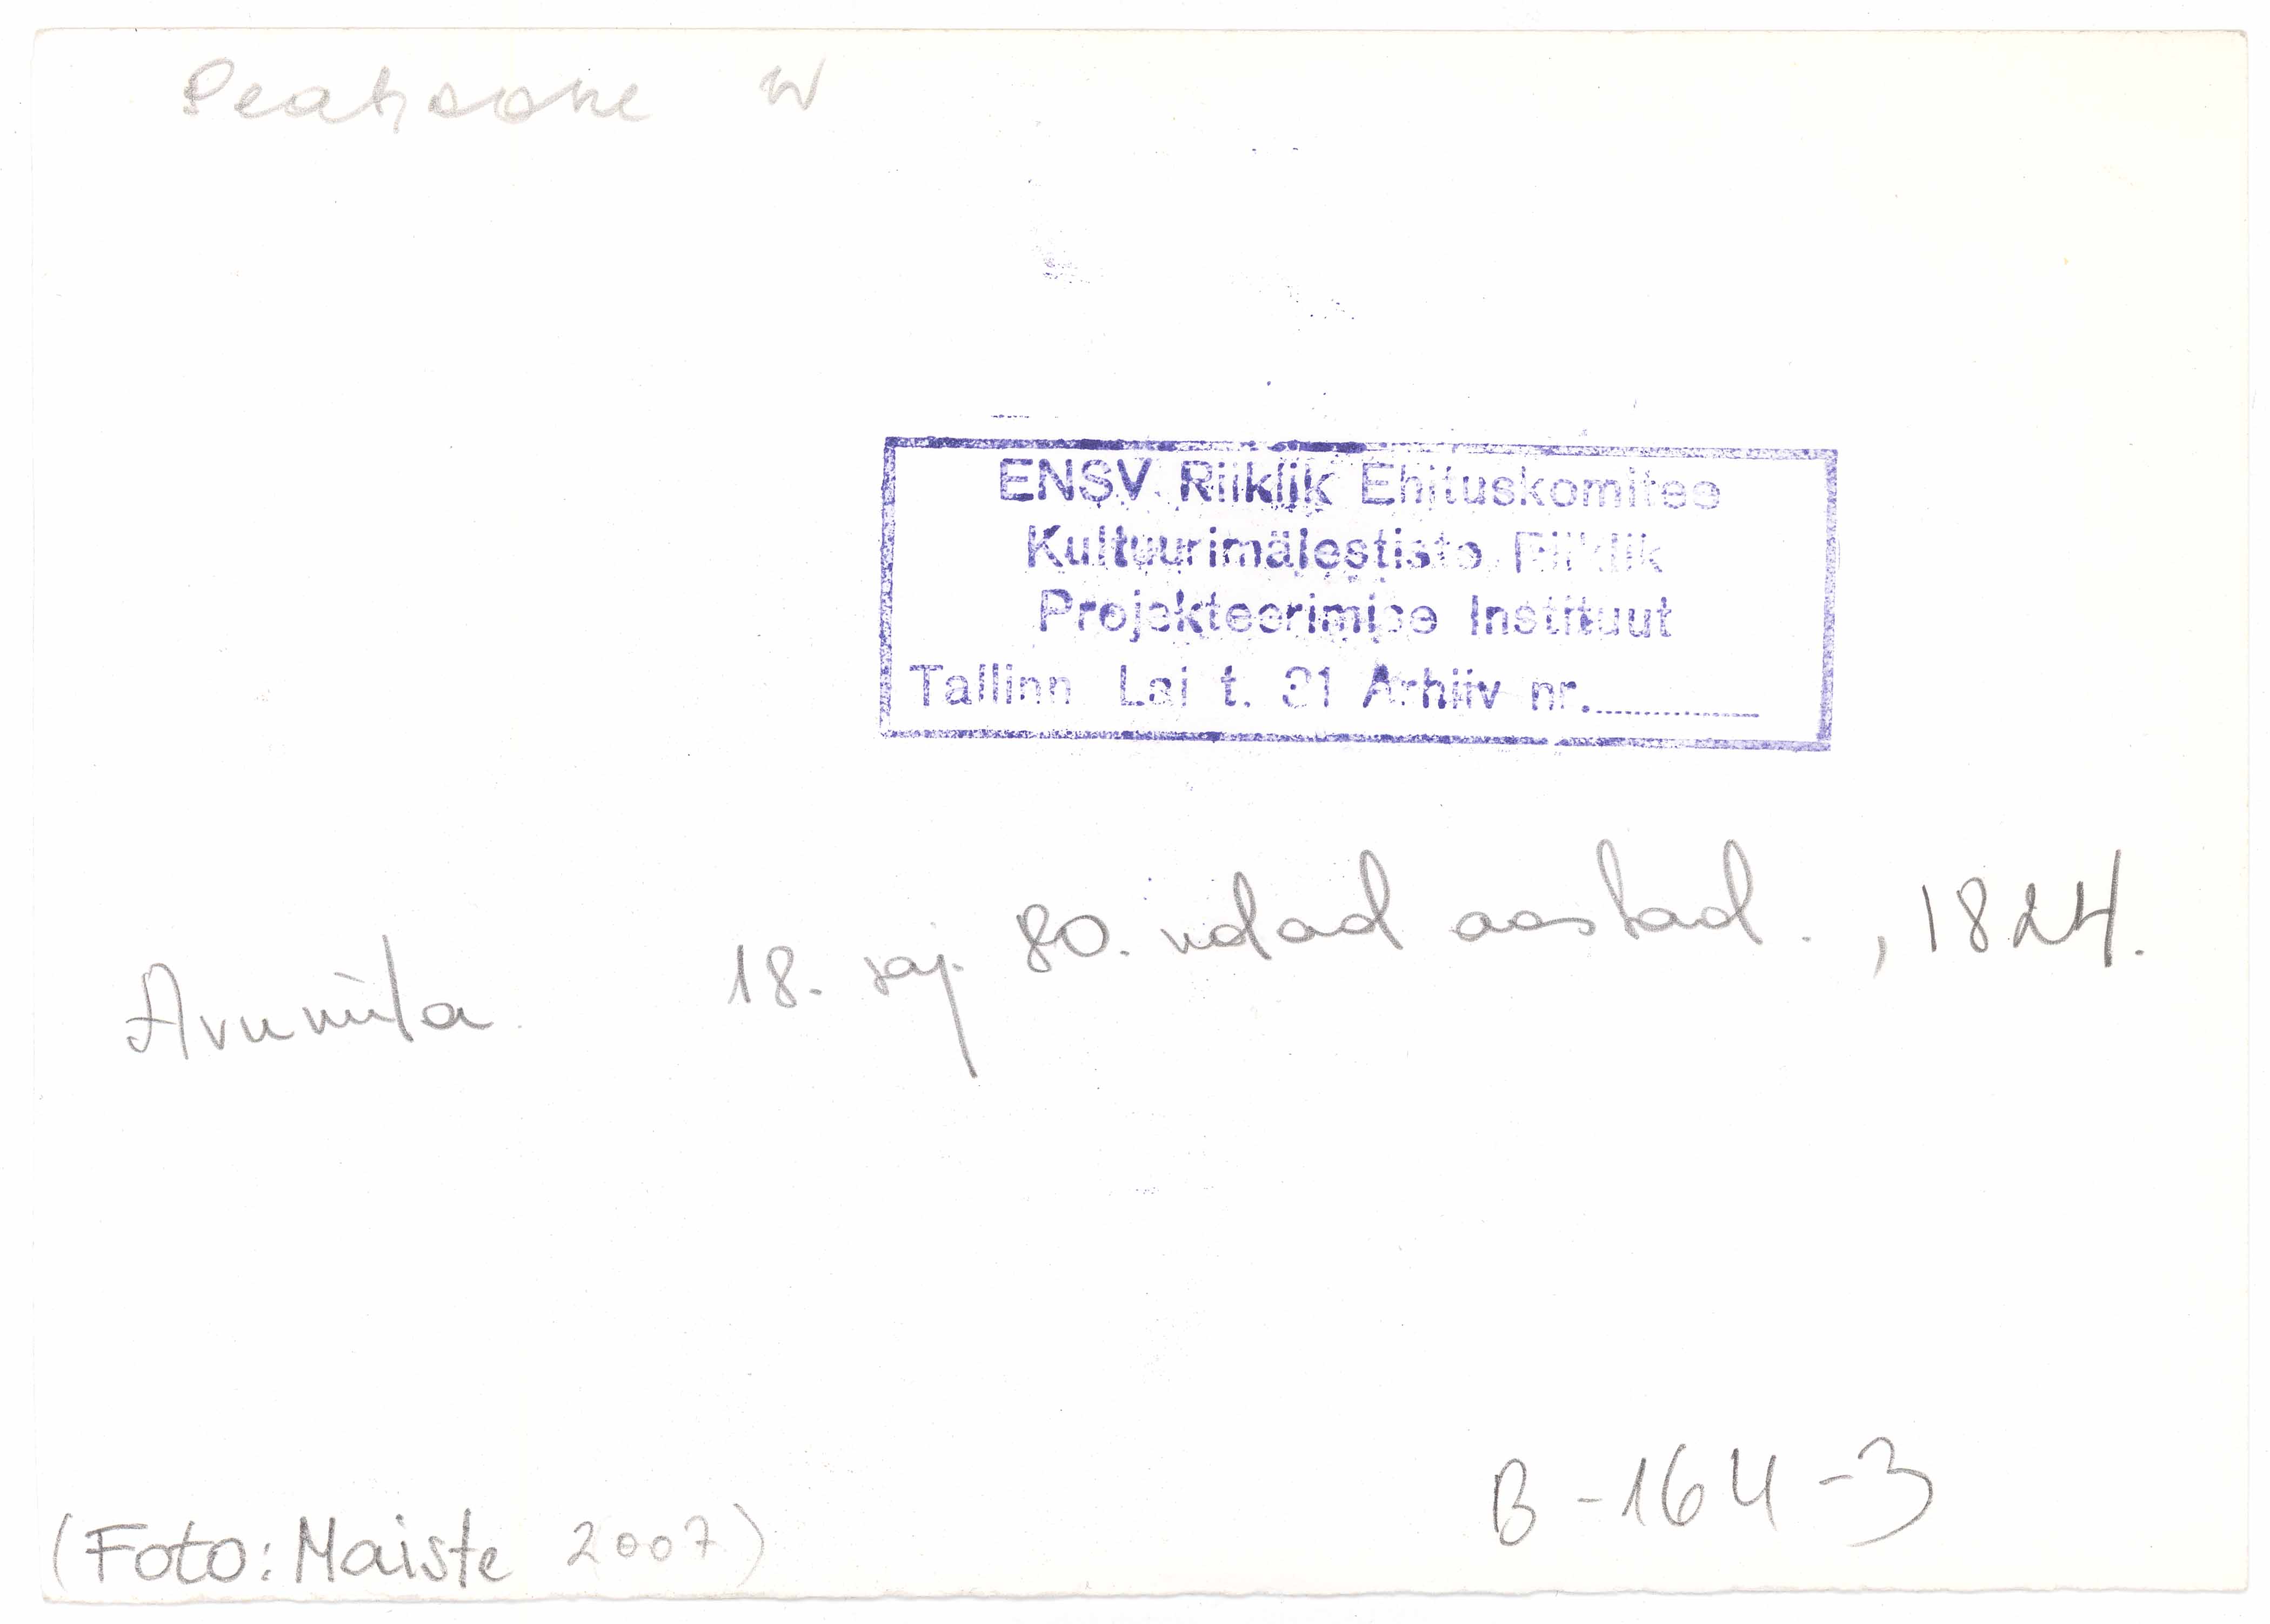 Peahoone W
ENSV Riiklik Ehituskomitee
Kultuurimälestiste Riiklik
Projekteerimise Instituut
Tallinn Lai t. 31 Arhiiv nr.
Aruküla 18. saj. 80. ndad aastad. , 1824.
B-164-3
(Foto: Maiste 2007)